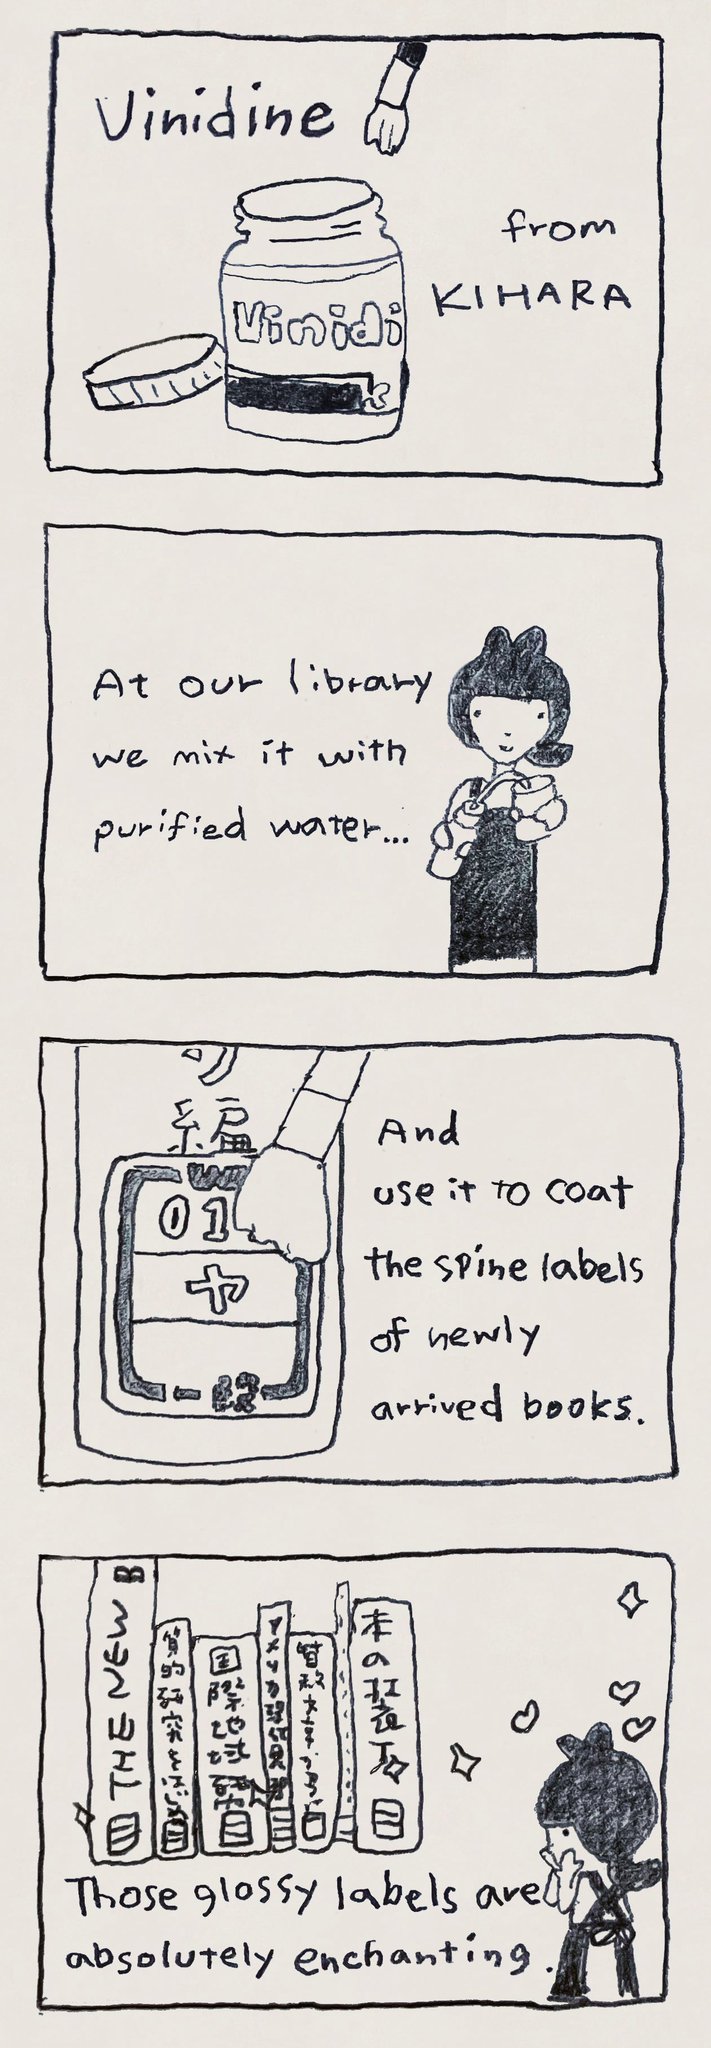 Vinidine
from
KIHARA
Vinidi
At our library
we mix it with
purified water...
編
01
ヤ
And
use it to coat
the spine labels
of newly
arrived books.
THE NEW B
質的研究
国際地域
本の
Those glossy labels are
absolutely enchanting.